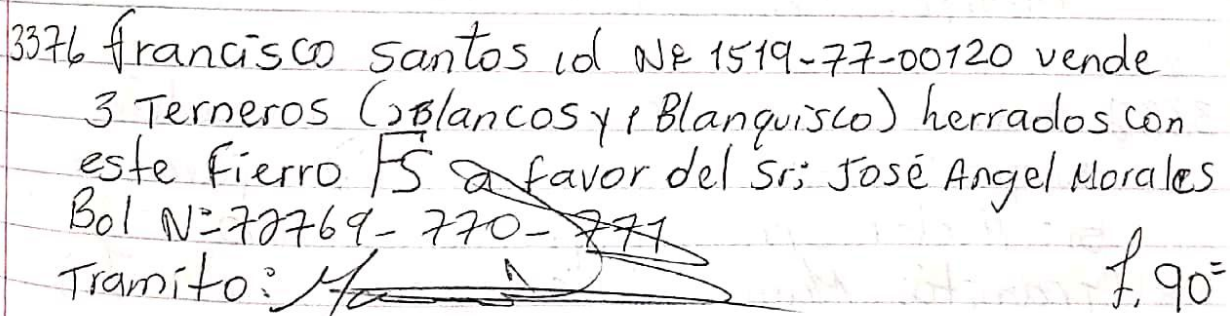 3376 francisco santos id Nº 1519-77-00120 vende
3 Terneros (2Blancos y 1 Blanquisco) herrados con
este Fierro FS a favor del Sr; José Angel Morales
Bol Nº 77769- 770- 771
Tramito:
f. 90=